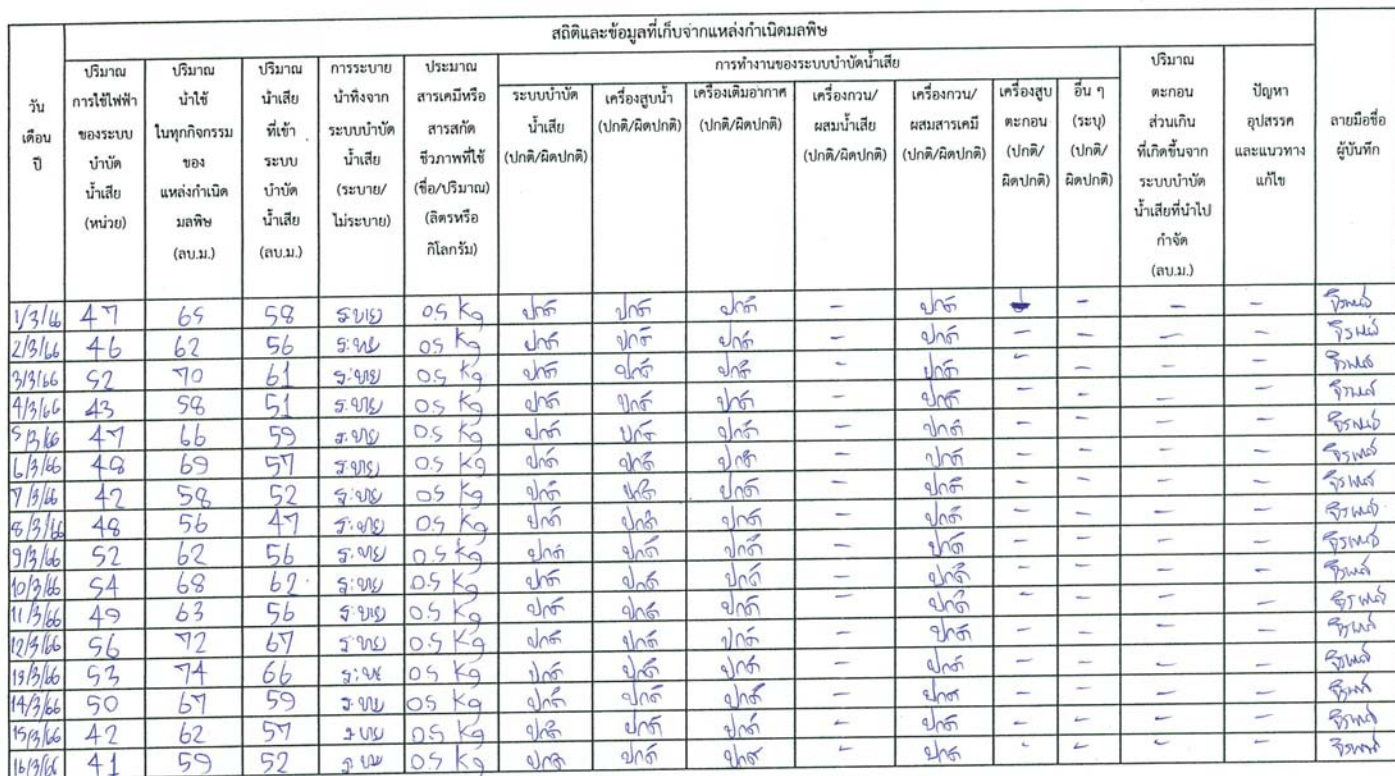 สถิติและข้อมูลที่เก็บจากแหล่งกำเนิดมลพิษ
วัน
เดือน
ปี
ปริมาณ
การใช้ไฟฟ้า
ของระบบ
บำบัด
น้ำเสีย
(หน่วย)
ปริมาณ
น้ำใช้
ในทุกกิจกรรม
ของ
แหล่งกำเนิด
มลพิษ
(ลบ.ม.)
ปริมาณ
น้ำเสีย
ที่เข้า
ระบบ
บำบัด
น้ำเสีย
(ลบ.ม.)
การระบาย
น้ำทิ้งจาก
ระบบบำบัด
น้ำเสีย
(ระบาย/
ไม่ระบาย)
ประมาณ
สารเคมีหรือ
สารสกัด
ชีวภาพที่ใช้
(ชื่อ/ปริมาณ)
(ลิตรหรือ
กิโลกรัม)
การทำงานของระบบบำบัดน้ำเสีย
ระบบบำบัด
น้ำเสีย
(ปกติ/ผิดปกติ)
เครื่องสูบน้ำ
(ปกติ/ผิดปกติ)
เครื่องเติมอากาศ
(ปกติ/ผิดปกติ)
เครื่องกวน/
ผสมน้ำเสีย
(ปกติ/ผิดปกติ)
เครื่องกวน/
ผสมสารเคมี
(ปกติ/ผิดปกติ)
เครื่องสูบ
ตะกอน
(ปกติ/
ผิดปกติ)
อื่น ๆ
(ระบุ)
(ปกติ/
ผิดปกติ)
ปริมาณ
ตะกอน
ส่วนเกิน
ที่เกิดขึ้นจาก
ระบบบำบัด
น้ำเสียที่นำไป
กำจัด
(ลบ.ม.)
ปัญหา
อุปสรรค
และแนวทาง
แก้ไข
ลายมือชื่อ
ผู้บันทึก
1/3/66 47 65 58 ระบาย 0.5 Kg ปกติ ปกติ ปกติ - ปกติ - - - -
2/3/66 46 62 56 ระบาย 0.5 Kg ปกติ ปกติ ปกติ - ปกติ - - - -
3/3/66 52 70 61 ระบาย 0.5 Kg ปกติ ปกติ ปกติ - ปกติ - - - -
4/3/66 43 58 51 ระบาย 0.5 Kg ปกติ ปกติ ปกติ - ปกติ - - - -
5/3/66 47 66 59 ระบาย 0.5 Kg ปกติ ปกติ ปกติ - ปกติ - - - -
6/3/66 48 69 57 ระบาย 0.5 Kg ปกติ ปกติ ปกติ - ปกติ - - - -
7/3/66 42 58 52 ระบาย 0.5 Kg ปกติ ปกติ ปกติ - ปกติ - - - -
8/3/66 48 56 47 ระบาย 0.5 Kg ปกติ ปกติ ปกติ - ปกติ - - - -
9/3/66 52 62 56 ระบาย 0.5 Kg ปกติ ปกติ ปกติ - ปกติ - - - -
10/3/66 54 68 62 ระบาย 0.5 Kg ปกติ ปกติ ปกติ - ปกติ - - - -
11/3/66 49 63 56 ระบาย 0.5 Kg ปกติ ปกติ ปกติ - ปกติ - - - -
12/3/66 56 72 67 ระบาย 0.5 Kg ปกติ ปกติ ปกติ - ปกติ - - - -
13/3/66 53 74 66 ระบาย 0.5 Kg ปกติ ปกติ ปกติ - ปกติ - - - -
14/3/66 50 67 59 ระบาย 0.5 Kg ปกติ ปกติ ปกติ - ปกติ - - - -
15/3/66 42 62 57 ระบาย 0.5 Kg ปกติ ปกติ ปกติ - ปกติ - - - -
16/3/66 41 59 52 ระบาย 0.5 Kg ปกติ ปกติ ปกติ - ปกติ - - - -